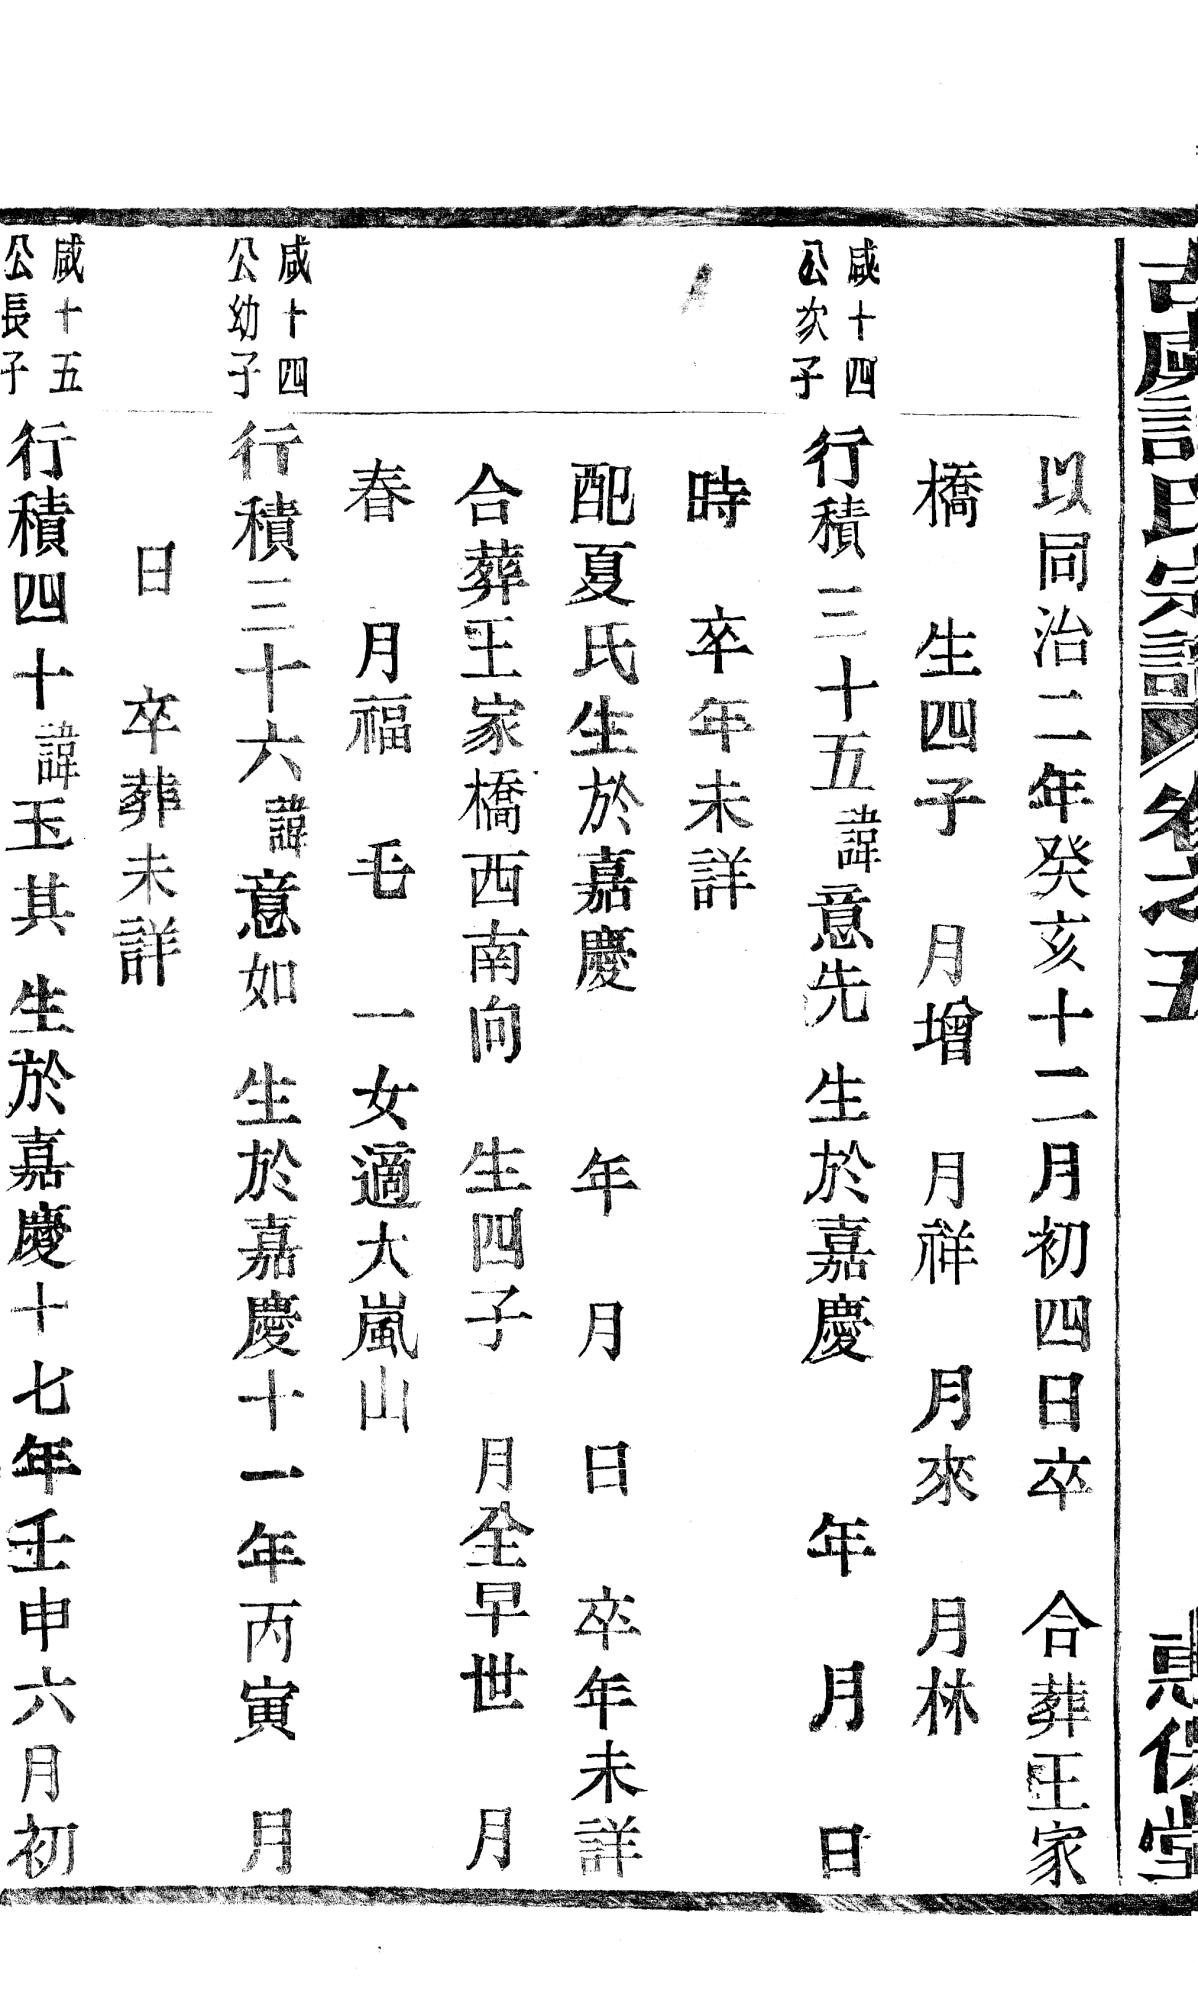 古虞許氏宗譜 卷之五 惠保堂
以同治二年癸亥十二月初四日卒 合葬王家
橋 生四子 月增 月祥 月來 月林
咸十四
公次子
行積三十五諱意先 生於嘉慶 年 月 日
時 卒年未詳
配夏氏生於嘉慶 年 月 日 卒年未詳
合葬王家橋西南向 生四子 月全早世 月
春 月福 毛 一女適大嵐山
咸十四
公幼子
行積三十六諱意如 生於嘉慶十一年丙寅 月
日 卒葬未詳
咸十五
公長子
行積四十諱玉其 生於嘉慶十七年壬申六月初